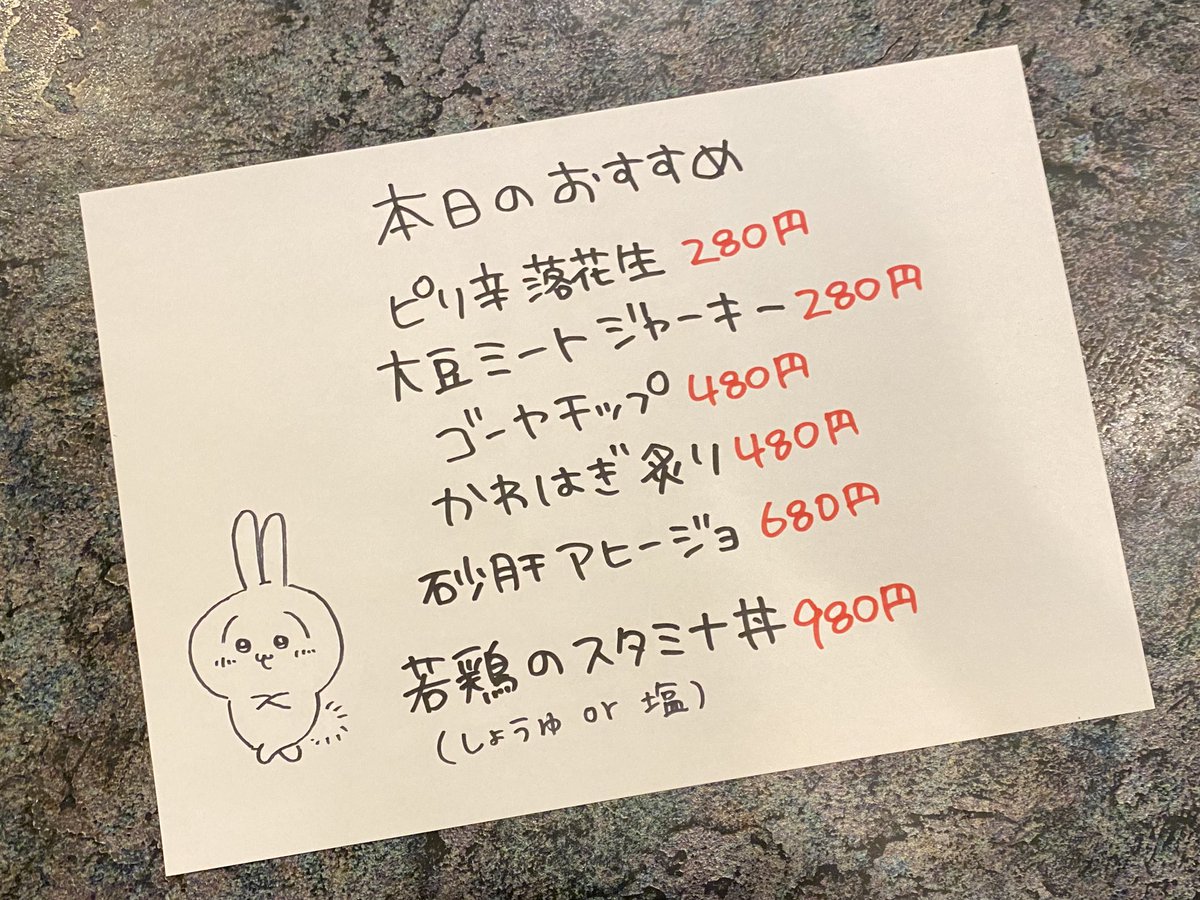 本日のおすすめ
ピリ辛落花生 280円
大豆ミートジャーキー 280円
ゴーヤチップ 480円
かわはぎ炙り 480円
砂肝アヒージョ 680円
若鶏のスタミナ丼 980円
(しょうゆ or 塩)